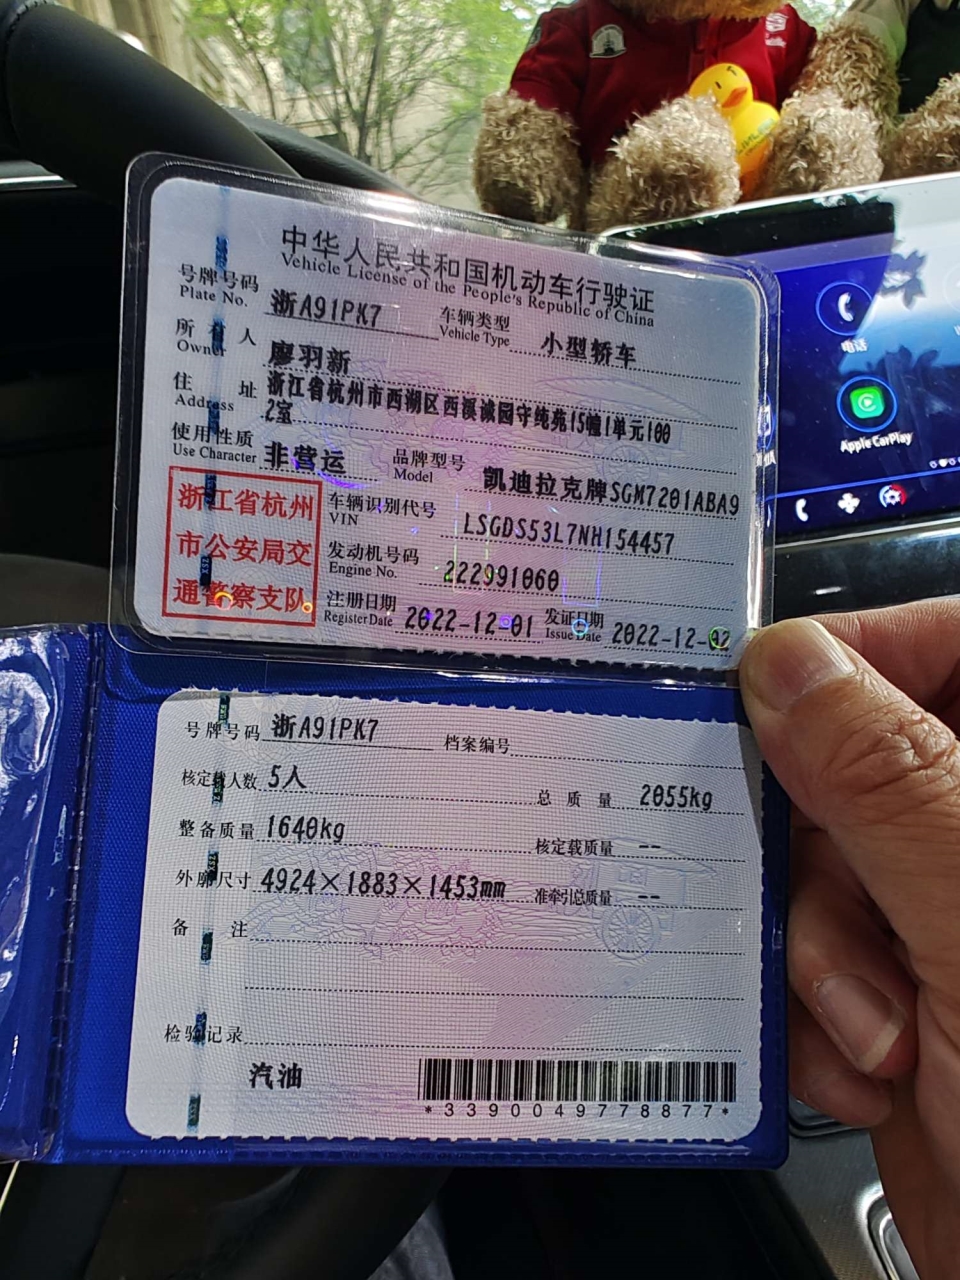 中华人民共和国机动车行驶证
Vehicle License of the People's Republic of China
号牌号码 浙A91PK7 车辆类型 小型轿车
Plate No. Vehicle Type
所有人 廖羽新
Owner
住址 浙江省杭州市西湖区西溪诚园守纯苑15幢1单元100
Address 2室
使用性质 非营运 品牌型号 凯迪拉克牌SGM7201ABA9
Use Character Model
浙江省杭州
市公安局交
通警察支队
车辆识别代号 LSGDS53L7NH154457
VIN
发动机号码 222991060
Engine No.
注册日期 2022-12-01 发证日期 2022-12-02
Register Date Issue Date
号牌号码 浙A91PK7 档案编号
核定载人数 5人 总质量 2055kg
整备质量 1640kg 核定载质量 --
外廓尺寸 4924×1883×1453mm 准牵引总质量 --
备注
检验记录
汽油
*3390049778877*
电话
Apple CarPlay